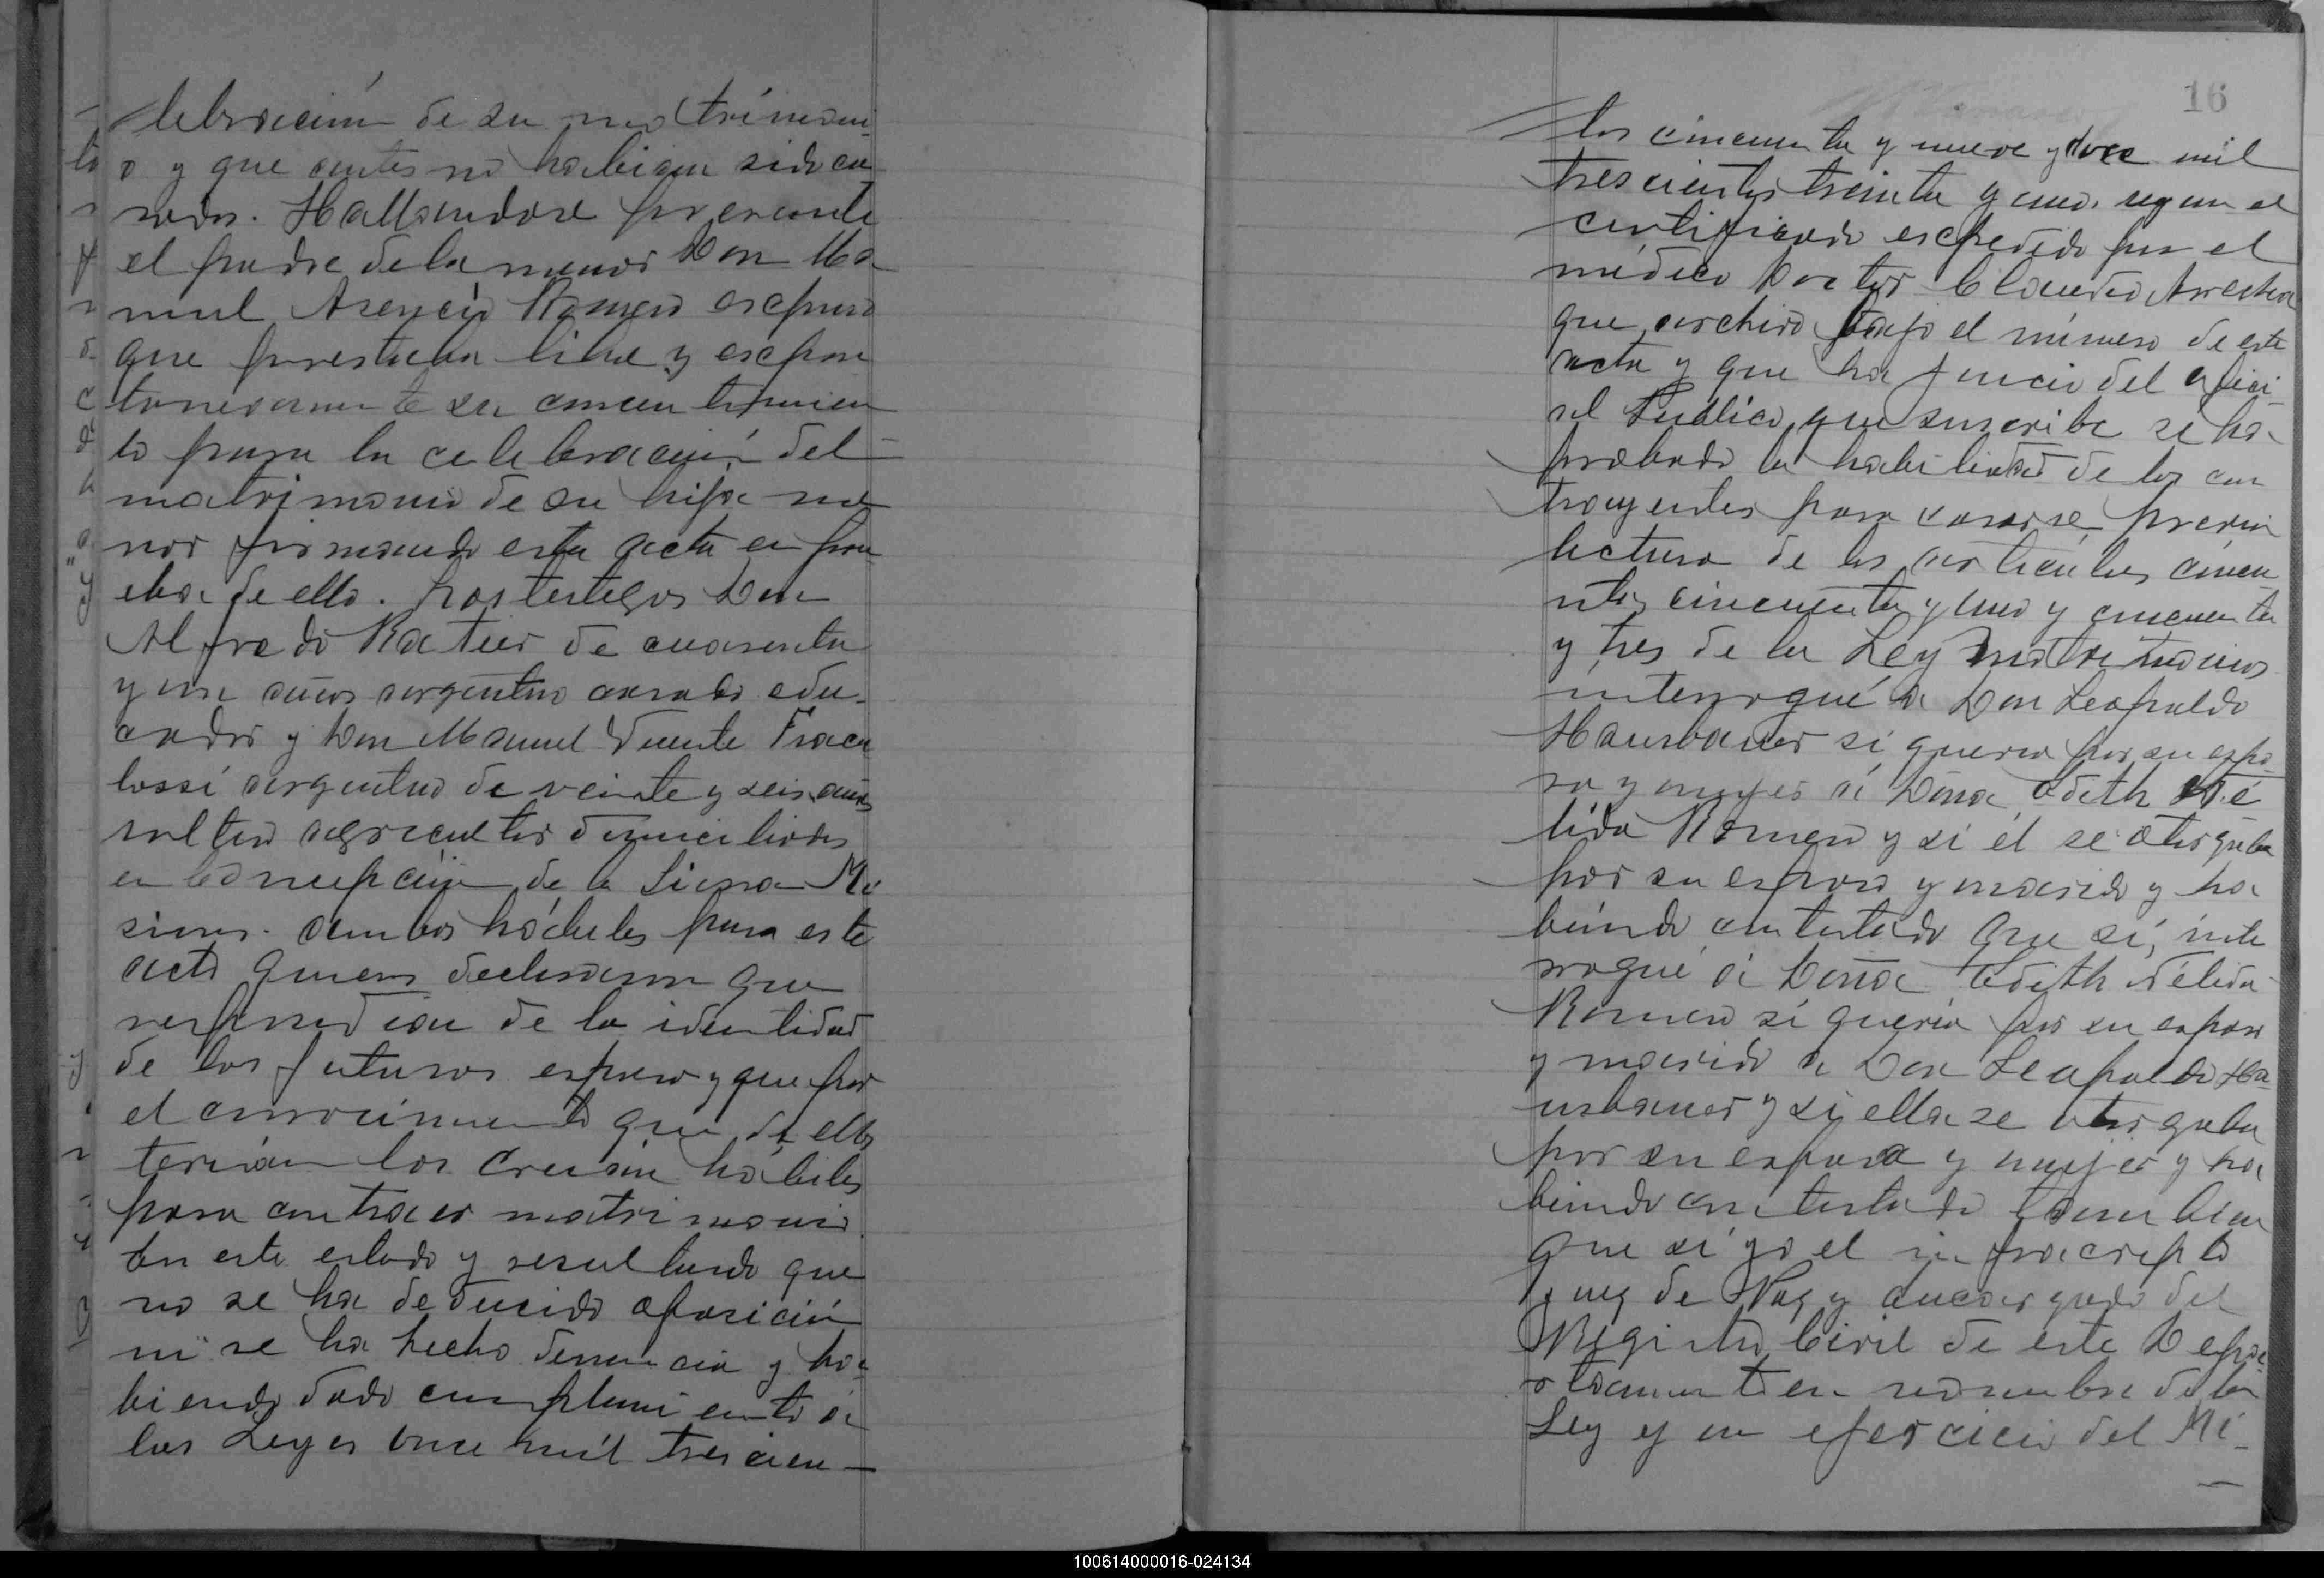 lebración de su matrimoni-
o y que antes no habian sido ca
sados. Hallandose presente
el padre de la menor Don Ma
nuel Asencio Romero expuso
que prestaba libre y espon
taneamente su consentimien
to para la celebración del
matrimonio de su hija me
nor firmando esta acta en prue
eba de ello. Los testigos Don
Alfredo Ratier de cuarenta
y un años argentino casado edu-
cador y Don Manuel Vicente Fraca
lossi argentino de veinte y seis años
soltero agricultor domiciliados
en Concepción de la Sierra Mi
siones. ambos hábiles para este
acto quienes declararon que
respondian de la identidad
de los futuros esposos y que por
el conocimiento que de ellos
tenian los creian hábiles
para contraer matrimonio.
En este estado y resultando que
no se ha deducido oposición
ni se ha hecho denuncia y ha-
biendo dado cumplimiento á
las Leyes once mil trescien-
16
tos cincuenta y nueve y doce mil
trescientos treinta y uno. segun el
certificado expedido por el
médico Doctor Claudio Arrechea
que archivo bajo el número de este
acta y que ha juicio del ofici-
al Publico que suscribe se ha
probado la habilidad de los con
trayentes para casarse previa
lectura de los articulos cincu
nta cincuenta y uno y cincuenta
y tres de la Ley matrimonios
interrogué á Don Leopoldo
Hausbauer si queria por su espo
sa y mujer á Doña Edith Né
lida Romero y si él se otorgaba
por su esposo y marido y ha
biendo contestado que si, inte
rrogué á Doña Edith Nélida
Romero si queria por su esposo
y marido a Don Leopoldo Ha
usbauer y si ella se otorgaba
por su esposa y mujer y ha
biendo contestado tambien
que si yo el infrascripto
Juez de Paz y encargado del
Registro Civil de este Depa
rtamento en nombre de la
Ley y en ejercicio del Mi-
100614000016-024134